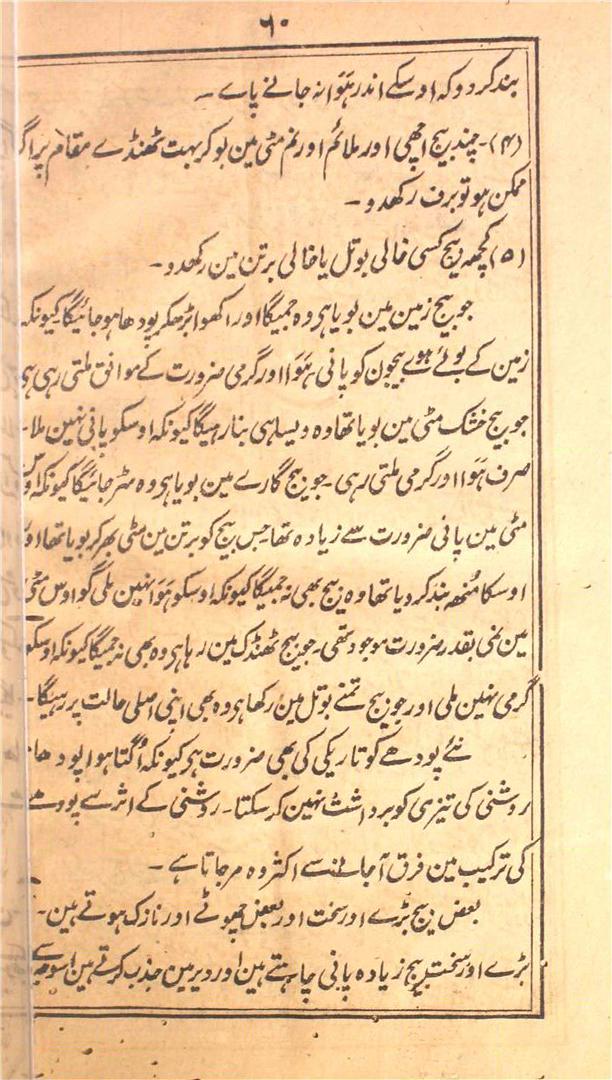 ۶۰
بند کردو کہ اوسکے اندر ہَوا نہ جانے پاے ۔
(۴)۔ چند بیج اچھی اور ملائم اور نم مٹی مین بوکر بہت ٹھنڈے مقام پر اگر
ممکن ہو تو برف رکھدو ۔
(۵) کچھ بیج کسی خالی بوتل یا خالی برتن مین رکھدو ۔
جو بیج زمین مین بویا ہی وہ جمیگا اور اکھوا بڑھکر پودھا ہو جائیگا کیونکہ
زمین کے بوئے ہوے بیجون کو پانی ہَوا اور گرمی ضرورت کے موافق ملتی رہی ہی
جو بیج خشک مٹی مین بویا تھا وہ ویسا ہی بنا رہیگا کیونکہ اوسکو پانی نہین ملا۔
صرف ہَوا اور گرمی ملتی رہی ۔ جو بیج گارے مین بویا ہی وہ سڑ جائیگا کیونکہ اوس
مٹی مین پانی ضرورت سے زیادہ تھا جس بیج کو برتن مین مٹی بھر کر بویا تھا اور
اوسکا مُنھ بند کر دیا تھا وہ بیج بھی نہ جمیگا کیونکہ اوسکو ہَوا نہین ملی گو اوس مٹی
مین نمی بقدر ضرورت موجود تھی ۔ جو بیج ٹھنڈک مین رہا ہی وہ بھی نہ جمیگا کیونکہ اوسکو
گرمی نہین ملی اور جو بیج تمنے بوتل مین رکھا ہی وہ بھی اپنی اصلی حالت پر رہیگا۔
نئے پودھے کو تاریکی کی بھی ضرورت ہی کیونکہ اُگتا ہوا پودھا
روشنی کی تیزی کو برداشت نہین کر سکتا ۔ روشنی کے اثر سے پودھے
کی ترکیب مین فرق آ جانے سے اکثر وہ مر جاتا ہے ۔
بعض بیج بڑے اور سخت اور بعض چھوٹے اور نازک ہوتے ہین ۔
بڑے اور سخت بیج زیادہ پانی چاہتے ہین اور دیر مین جذب کرتے ہین اسوجہ سے